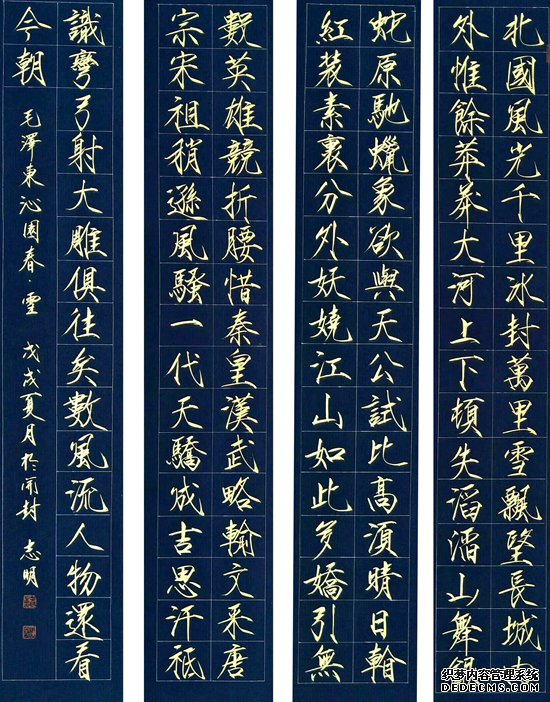 北國風光千里冰封萬里雪飄望長城内
外惟餘莽莽大河上下頓失滔滔山舞銀
蛇原馳蠟象欲與天公試比高須晴日
紅装素裹分外妖嬈江山如此多嬌引無
數英雄競折腰惜秦皇漢武略輸文采唐
宗宋祖稍遜風騷一代天驕成吉思汗祗
識彎弓射大雕俱往矣數風流人物還看
今朝
毛澤東沁園春·雪 戊戌夏月於開封 志明
织梦内容管理系统
DEDECMS.COM